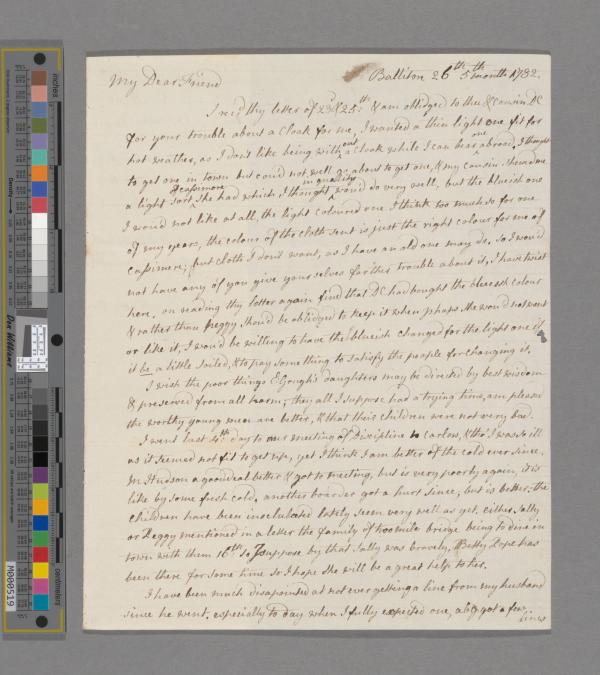 My Dear Friend
Ballitore 26th 5th month 1782.
I rec'd thy letter of 23d & 25th: & am obliged to thee & Cousin DC
for your trouble about a Cloak for me, I wanted a thin light one fit for
hot weather, as I don't like being without a Cloak while I can bear one abroad. I thought
to get one in town but could not well go about to get one, & my cousin shewed me
a light sort of cassimere She had which I thought in quality wou'd do very well, but the blueish one
I wou'd not like at all, the light coloured one I think too much so for one
of my years, the colour of the cloth sent is just the right colour for me of
cassimere; but cloth I don't want, as I have an old one may do, so I wou'd
not have any of you give yourselves farther trouble about it, I have twist
here, on reading thy letter again find that DC had bought the blueish colour
& rather than Peggy shou'd be obliged to keep it when phaps she wou'd not want
or like it, I wou'd be willing to have the blueish changed for the light one if
it be a little soiled, & to pay something to satisfy the people for changing it.
I wish the poor things E Gough's daughters may be directed by best wisdom
& preserved from all harm, they all I suppose had a trying time, am pleased
the worthy young men are better, & that their Children were not very bad.
I went last 4th day to our meeting of Discipline to Carlow, & tho' I was so ill
as it seemed not fit to get up, yet I think I am better of the cold ever since,
M: Hudson a good deal better & got to meeting, but is very poorly again, it is
like by some fresh cold. another boarder got a hurt since, but is better. the
children have been inoculated lately seem very well as yet. either Sally
or Peggy mentioned in a letter the family of twomile bridge being to dine in
town with them 16th so I suppose by that Sally was bravely, Betty Pope has
been there for some time so I hope she will be a great help to her.
I have been much disapointed at not ever getting a line from my husband
since he went. especially to day when I fully expected one, a b g got a few
lines
inches
centimetres
Don Williams
M000519